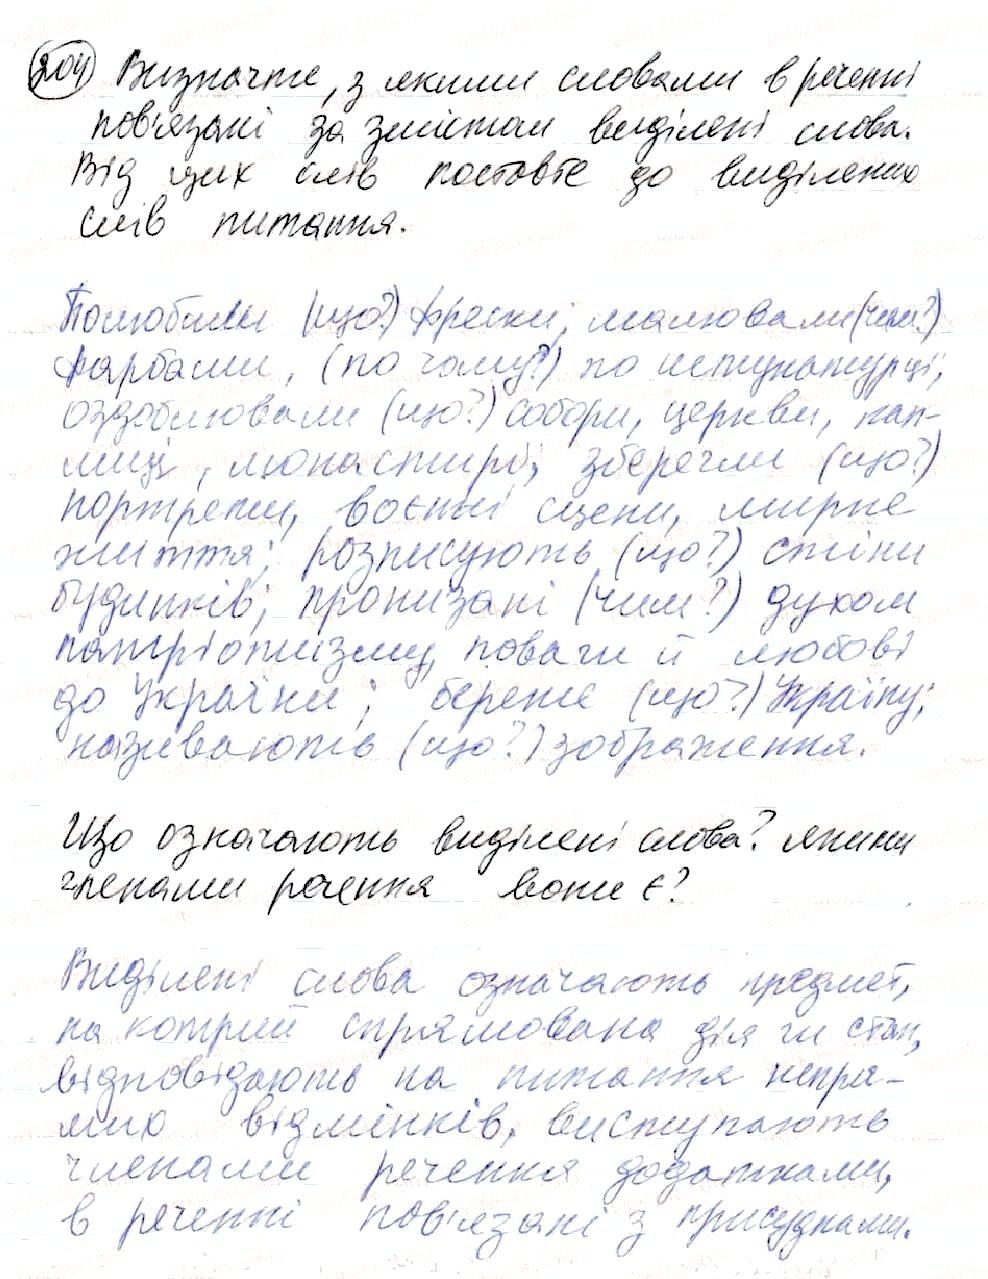 204 Визначте, з якими словами в реченні
пов'язані за змістом виділені слова.
Від цих слів поставте до виділених
слів питання.
Полюбили (що?) фрески; малювали (чим?)
фарбами, (по чому?) по штукатурці;
оздоблювали (що?) собори, церкви, кап-
лиці, монастирі; зберегли (що?)
портрети, воєнні сцени, мирне
життя; розписують (що?) стіни
будинків; пронизані (чим?) духом
патріотизму, поваги й любові
до України; береже (що?) Україну;
називають (що?) зображення.
Що означають виділені слова? Якими
членами речення вони є?
Виділені слова означають предмет,
на котрий спрямована дія чи стан,
відповідають на питання непря-
мих відмінків, виступають
членами речення додатками,
в реченні пов'язані з присудками.